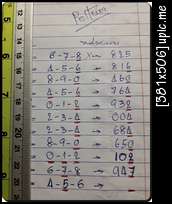 Pattern
6-7-8 825
4-5-6 - 816
8-9-0 - 460
4-5-6 - 764
0-1-2 - 932
2-3-4 - 004
2-3-4 - 684
8-9-0 - 650
0-1-2 - 102
6-7-8 - 947
4-5-6 -
[381x506] upic.me